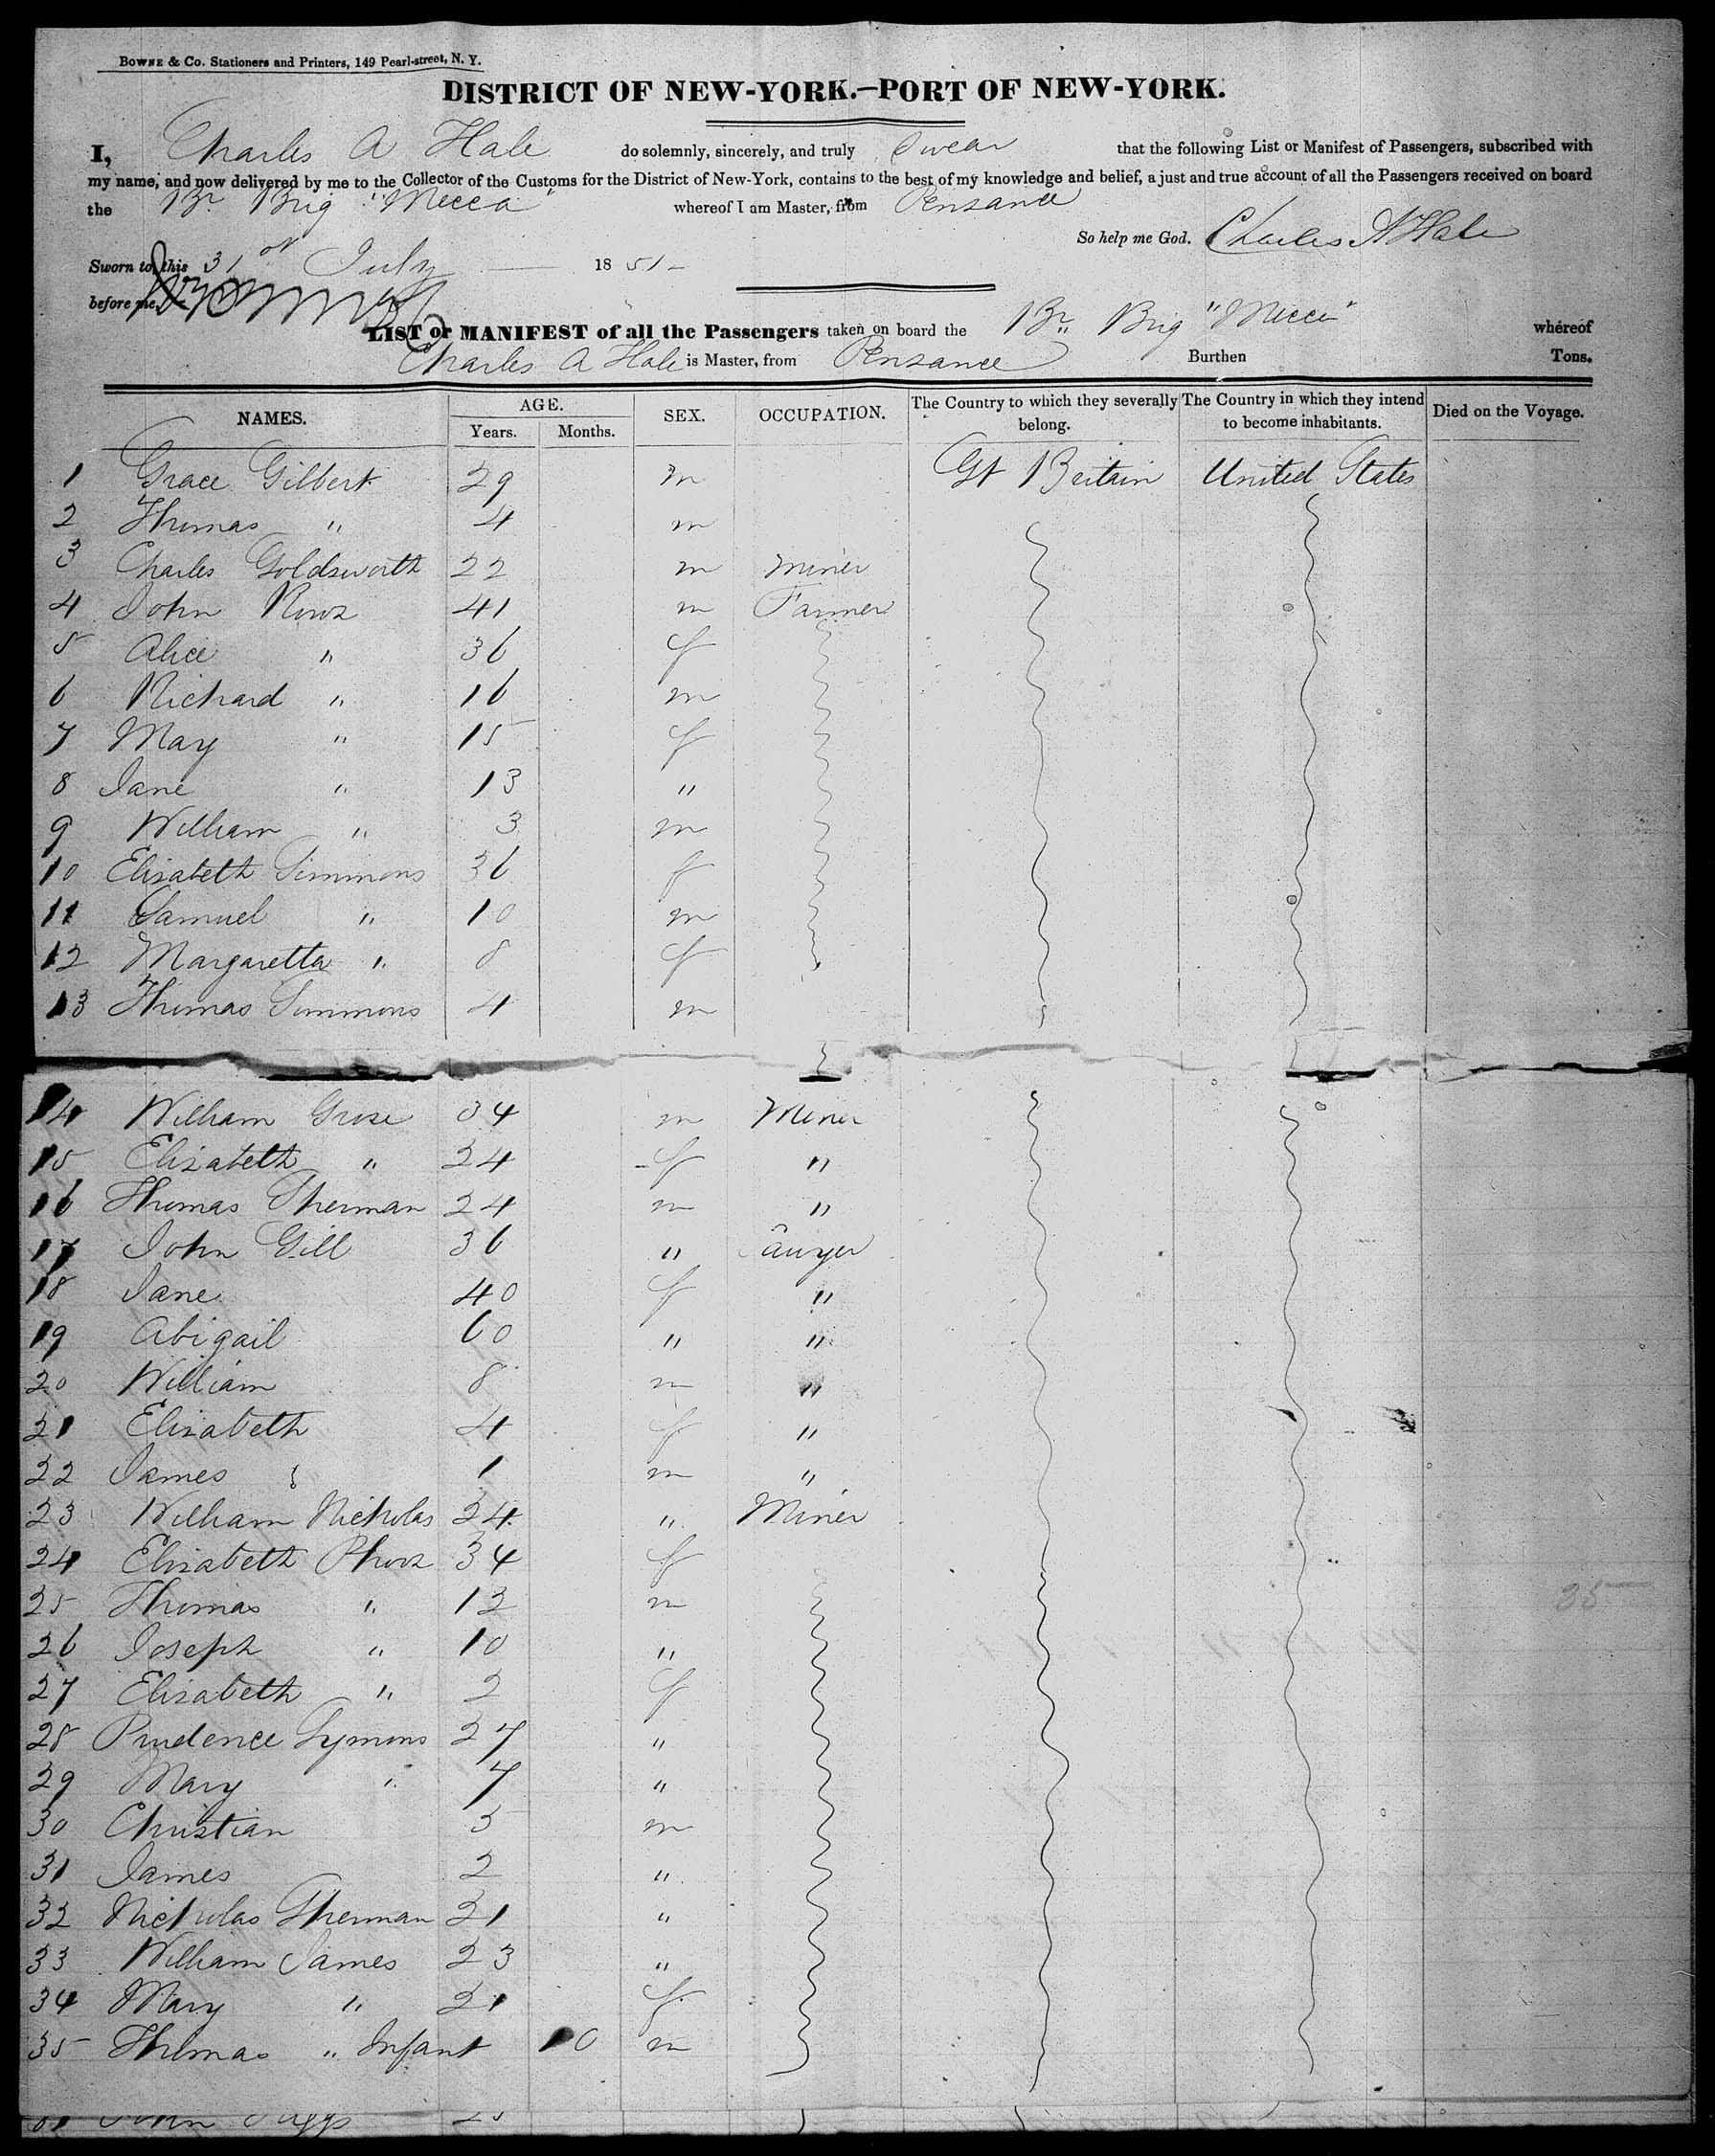 BOWNE & CO. Stationers and Printers, 149 Pearl-street, N. Y.
DISTRICT OF NEW-YORK.—PORT OF NEW-YORK.
I, Charles A Hale do solemnly, sincerely, and truly Swear that the following List or Manifest of Passengers, subscribed with
my name, and now delivered by me to the Collector of the Customs for the District of New-York, contains to the best of my knowledge and belief, a just and true account of all the Passengers received on board
the Br. Brig "Mecca" whereof I am Master, from Penzance
So help me God. Charles A Hale
Sworn to, this 31st July 1851
before me,
LIST or MANIFEST of all the Passengers taken on board the Br. Brig "Mecca" whereof
Charles A Hale is Master, from Penzance Burthen Tons.
NAMES. AGE. Years. Months. SEX. OCCUPATION. The Country to which they severally belong. The Country in which they intend to become inhabitants. Died on the Voyage.
1 Grace Gilbert 29 m Gt Britain United States
2 Thomas " 4 m
3 Charles Goldsworth 22 m Miner
4 John 41 m Farmer
5 Alice " 36 f
6 Richard " 16 m
7 May " 15 f
8 Jane " 13 "
9 William " 3 m
10 Elizabeth Simmons 36 f
11 Samuel " 10 m
12 Margaretta " 8 f
13 Thomas Simmons 4 m
14 William Grose 34 m Miner
15 Elizabeth " 24 f "
16 Thomas 24 m "
17 John Gill 36 "
18 Jane 40 f "
19 Abigail 60 " "
20 William 8 m "
21 Elizabeth 4 f "
22 James 1 m "
23 William Nicholas 24 " Miner
24 Elizabeth 34 f
25 Thomas " 12 m
26 Joseph " 10 "
27 Elizabeth " 2 f
28 Prudence Symons 27 "
29 Mary " 7 "
30 Christian 5 m
31 James 2 "
32 Nicholas 21 "
33 William James 23 "
34 Mary " 21 f
35 Thomas " Infant 10 m
35